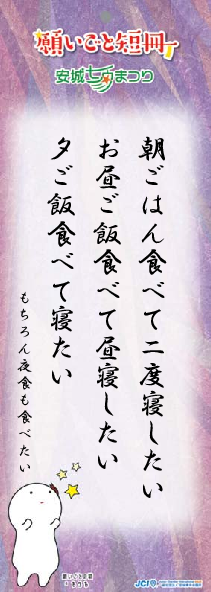 願いごと短冊
安城七夕まつり
朝ごはん食べて二度寝したい
お昼ご飯食べて昼寝したい
夕ご飯食べて寝たい
もちろん夜食も食べたい
願いごと短冊
JCI